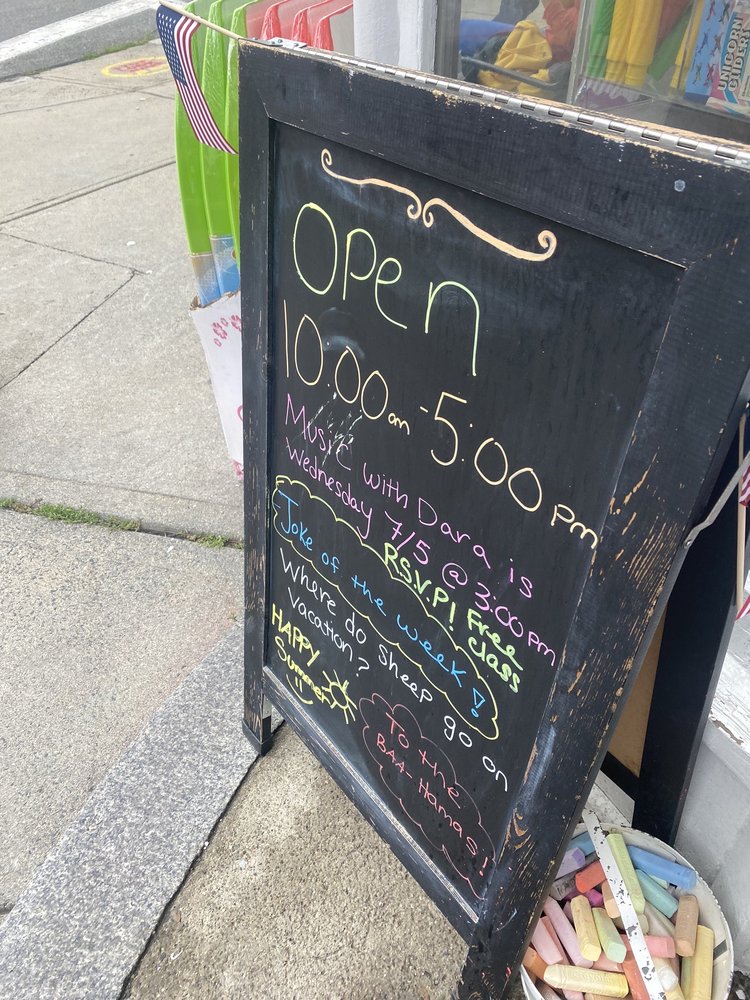 Open
10:00am - 5:00pm
Music with Dara is
Wednesday 7/5 @ 3:00pm
R.S.V.P! Free
class
Joke of the week!
Where do sheep go on
vacation?
HAPPY
Summer!
To the
BAA-Hamas!
UNICORN
GLIDERS